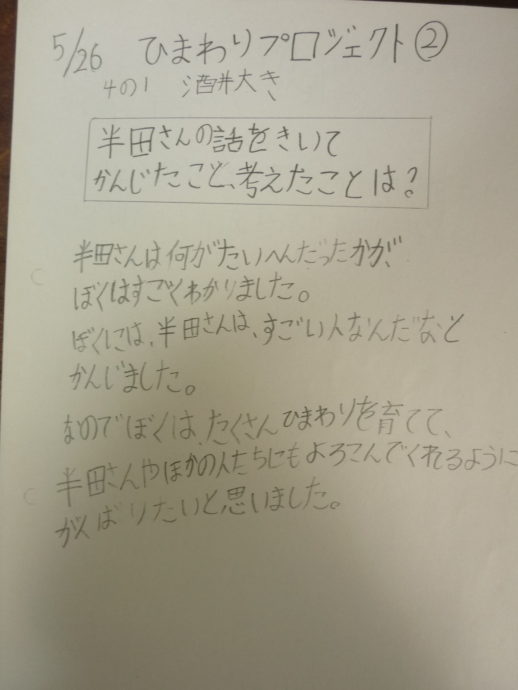 5/26 ひまわりプロジェクト②
4の1 酒井大き
半田さんの話をきいて
かんじたこと、考えたことは?
半田さんは何がたいへんだったかが、
ぼくはすごくわかりました。
ぼくには、半田さんは、すごい人なんだなと
かんじました。
なのでぼくは、たくさんひまわりを育てて、
半田さんやほかの人たちにもよろこんでくれるように
がんばりたいと思いました。